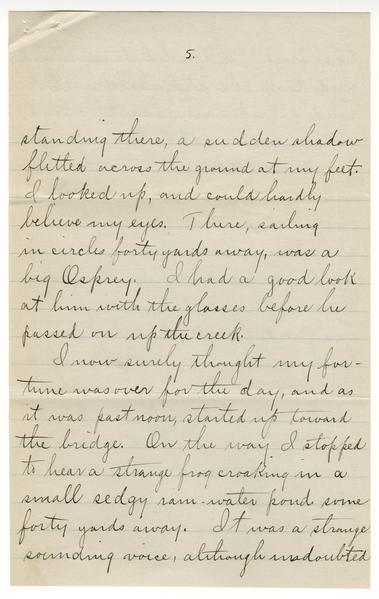 5.
standing there, a sudden shadow
flitted across the ground at my feet.
I looked up, and could hardly
believe my eyes. There, sailing
in circles forty yards away, was a
big Osprey. I had a good look
at him with the glasses before he
passed on up the creek.
I now surely thought my for-
tune was over for the day, and as
it was past noon, started up toward
the bridge. On the way I stopped
to hear a strange frog croaking in a
small sedgy rain-water pond some
forty yards away. It was a strange
sounding voice, although undoubted